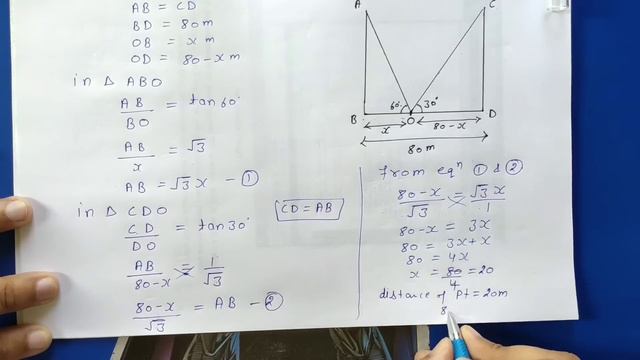 AB = CD
BD = 80m
OB = x m
OD = 80-x m
in Δ ABO
AB/BO = tan 60°
AB/x = √3
AB = √3 x - ①
in Δ CDO
CD/DO = tan 30°
CD = AB
AB/80-x = 1/√3
80-x/√3 = AB - ②
A
C
60°
30°
B
O
D
x
80-x
80m
From eqⁿ ① & ②
80-x/√3 = √3 x/1
80-x = 3x
80 = 3x+x
80 = 4x
x = 80/4 = 20
distance of Pt = 20m
8